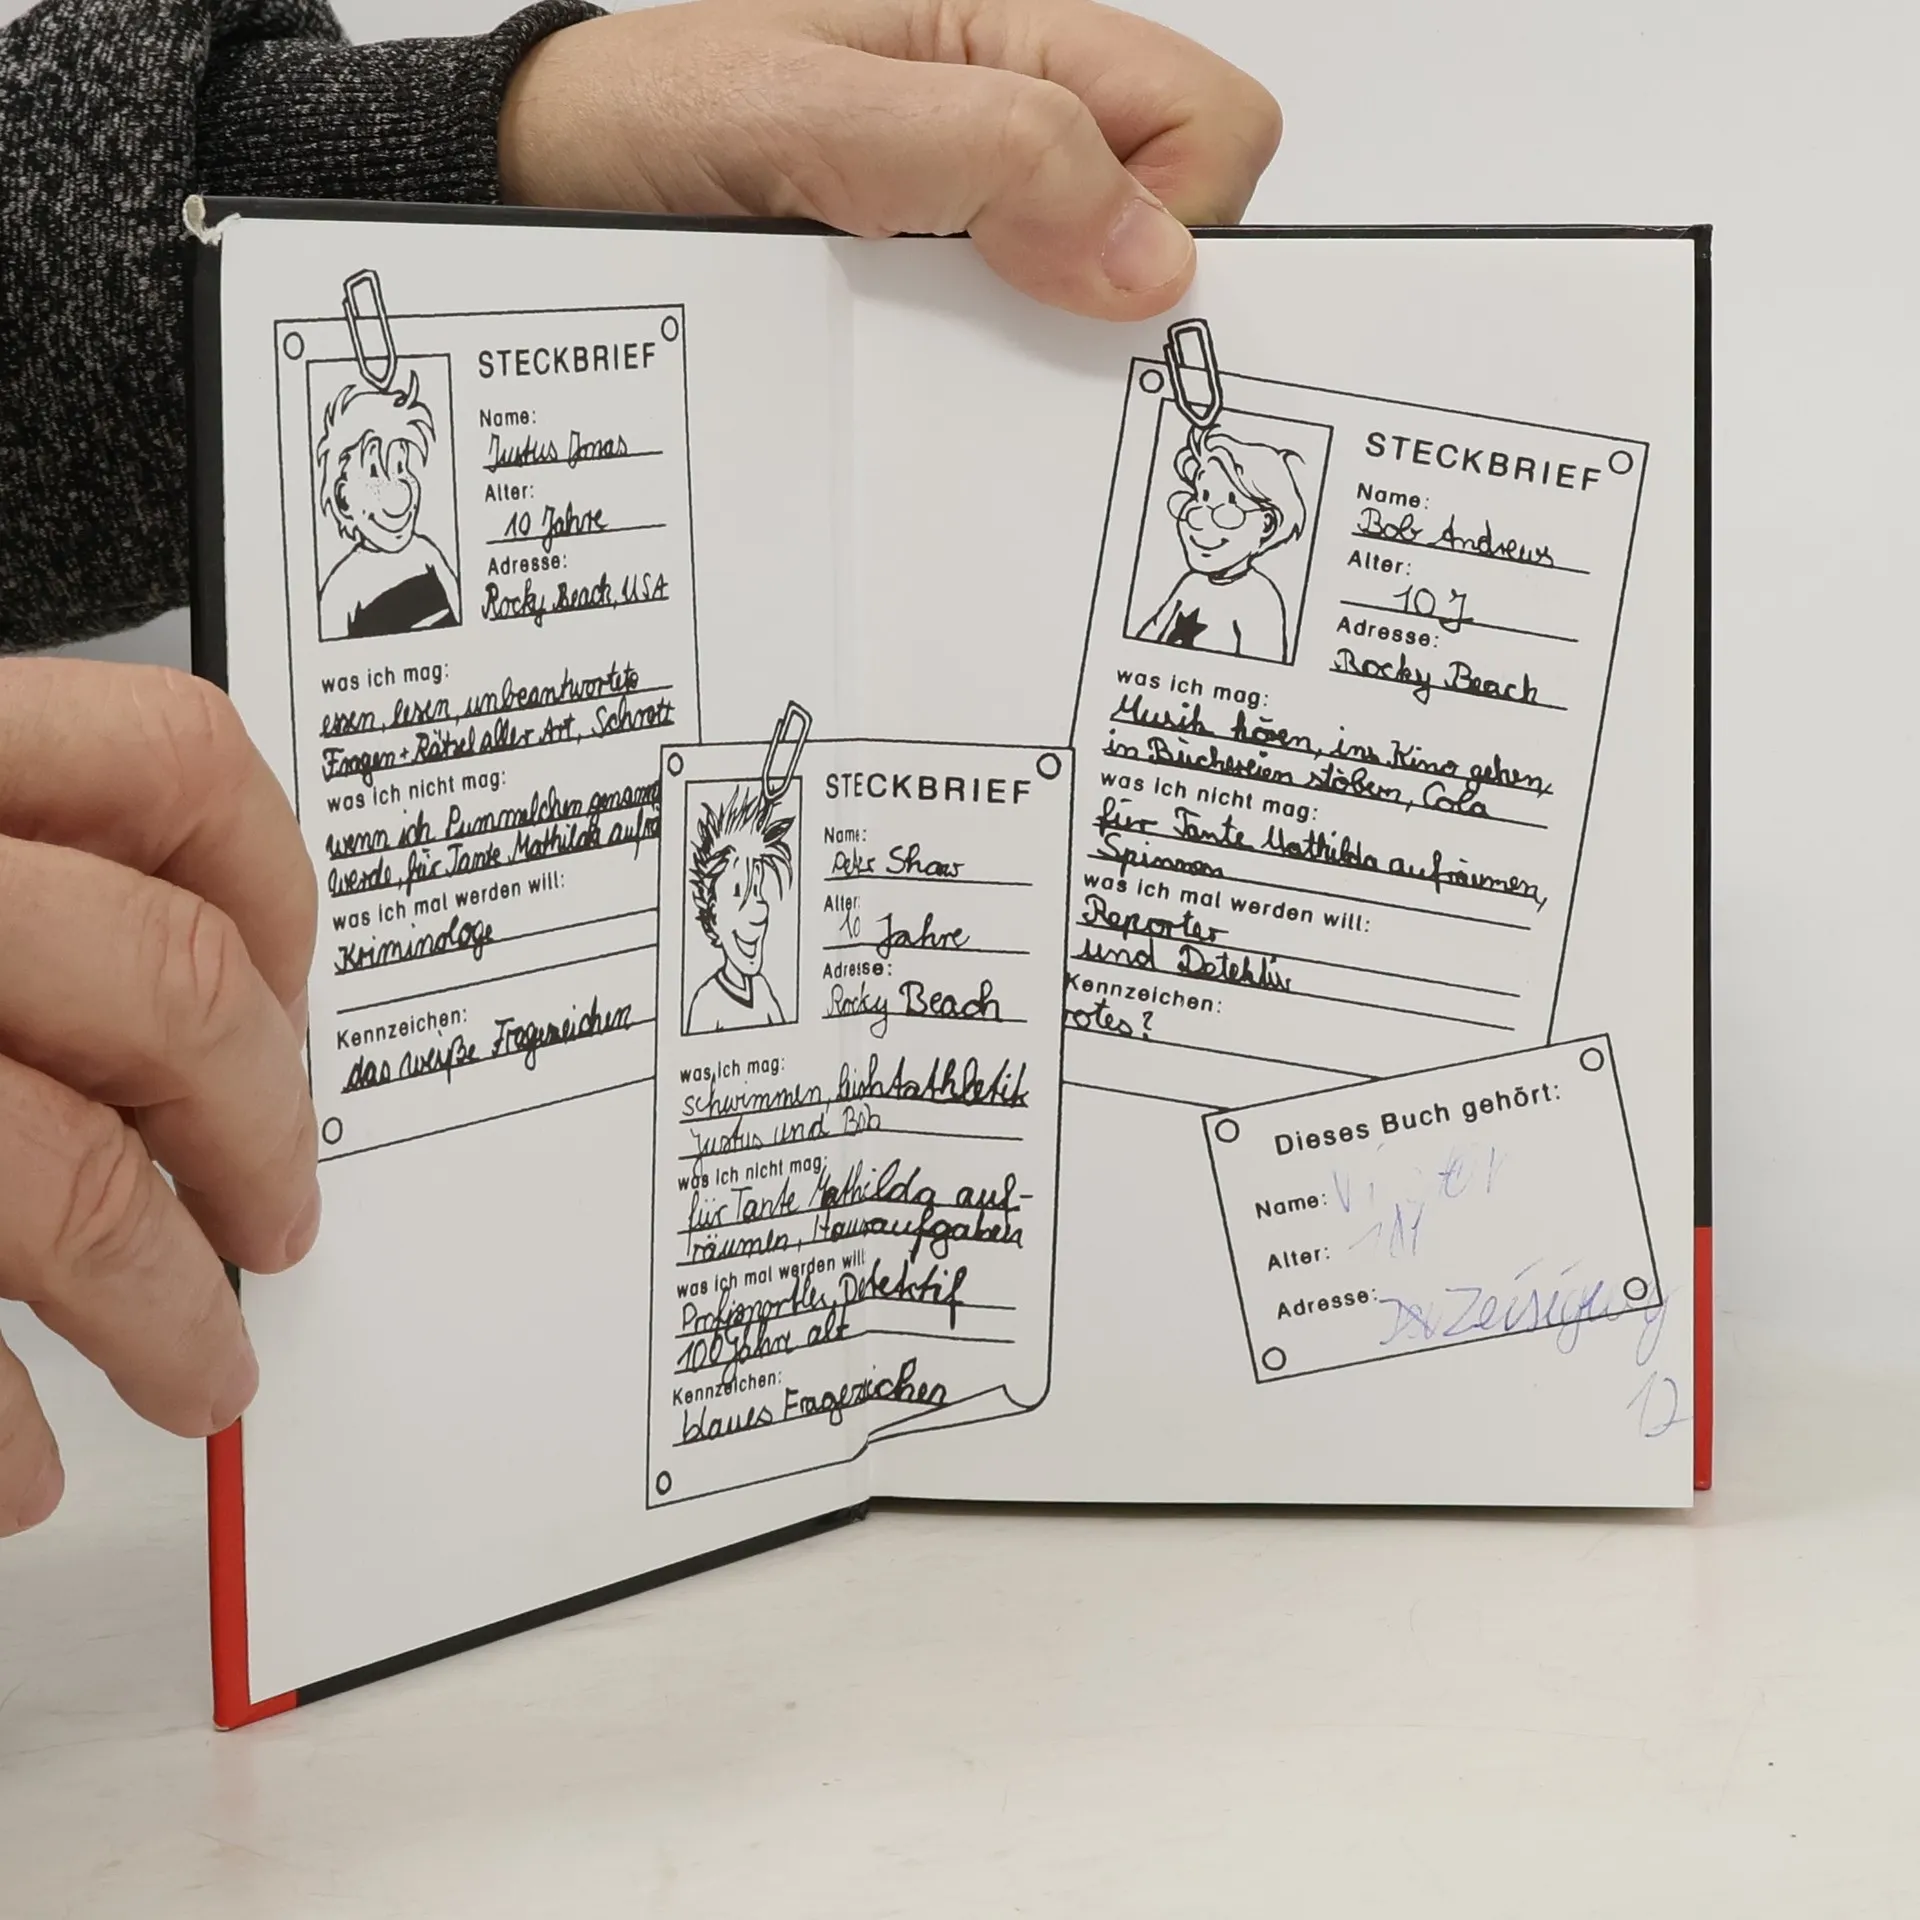 STECKBRIEF
Name:
Justus Jonas
Alter:
10 Jahre
Adresse:
Rocky Beach, USA
was ich mag:
essen, lesen, unbeantwortete
Fragen + Rätsel aller Art, Schrott
was ich nicht mag:
wenn ich Pummelchen genannt
werde, für Tante Mathilda aufrä
was ich mal werden will:
Kriminologe
Kennzeichen:
das weiße Fragezeichen
STECKBRIEF
Name:
Peter Shaw
Alter:
10 Jahre
Adresse:
Rocky Beach
was ich mag:
schwimmen, Leichtathletik
Justus und Bob
was ich nicht mag:
für Tante Mathilda auf-
räumen, Hausaufgaben
was ich mal werden will:
Profisportler, Detektif
100 Jahre alt
Kennzeichen:
blaues Fragezeichen
STECKBRIEF
Name:
Bob Andrews
Alter:
10 J
Adresse:
Rocky Beach
was ich mag:
Musik hören, ins Kino gehen,
in Büchereien stöbern, Cola
was ich nicht mag:
für Tante Mathilda aufräumen,
Spinnen
was ich mal werden will:
Reporter
und Detektiv
Kennzeichen:
rotes ?
Dieses Buch gehört:
Name:
Alter:
Adresse:
12